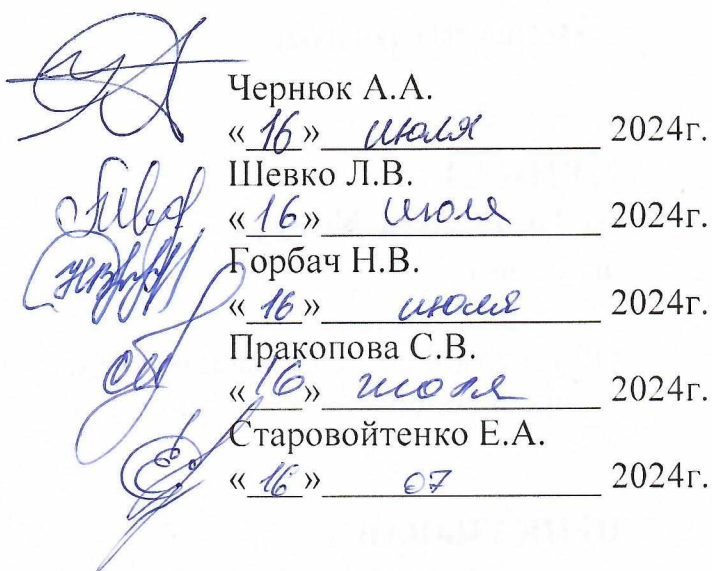 Чернюк А.А.
«16» июля 2024г.
Шевко Л.В.
«16» июля 2024г.
Горбач Н.В.
«16» июля 2024г.
Пракопова С.В.
«16» июля 2024г.
Старовойтенко Е.А.
«16» 07 2024г.